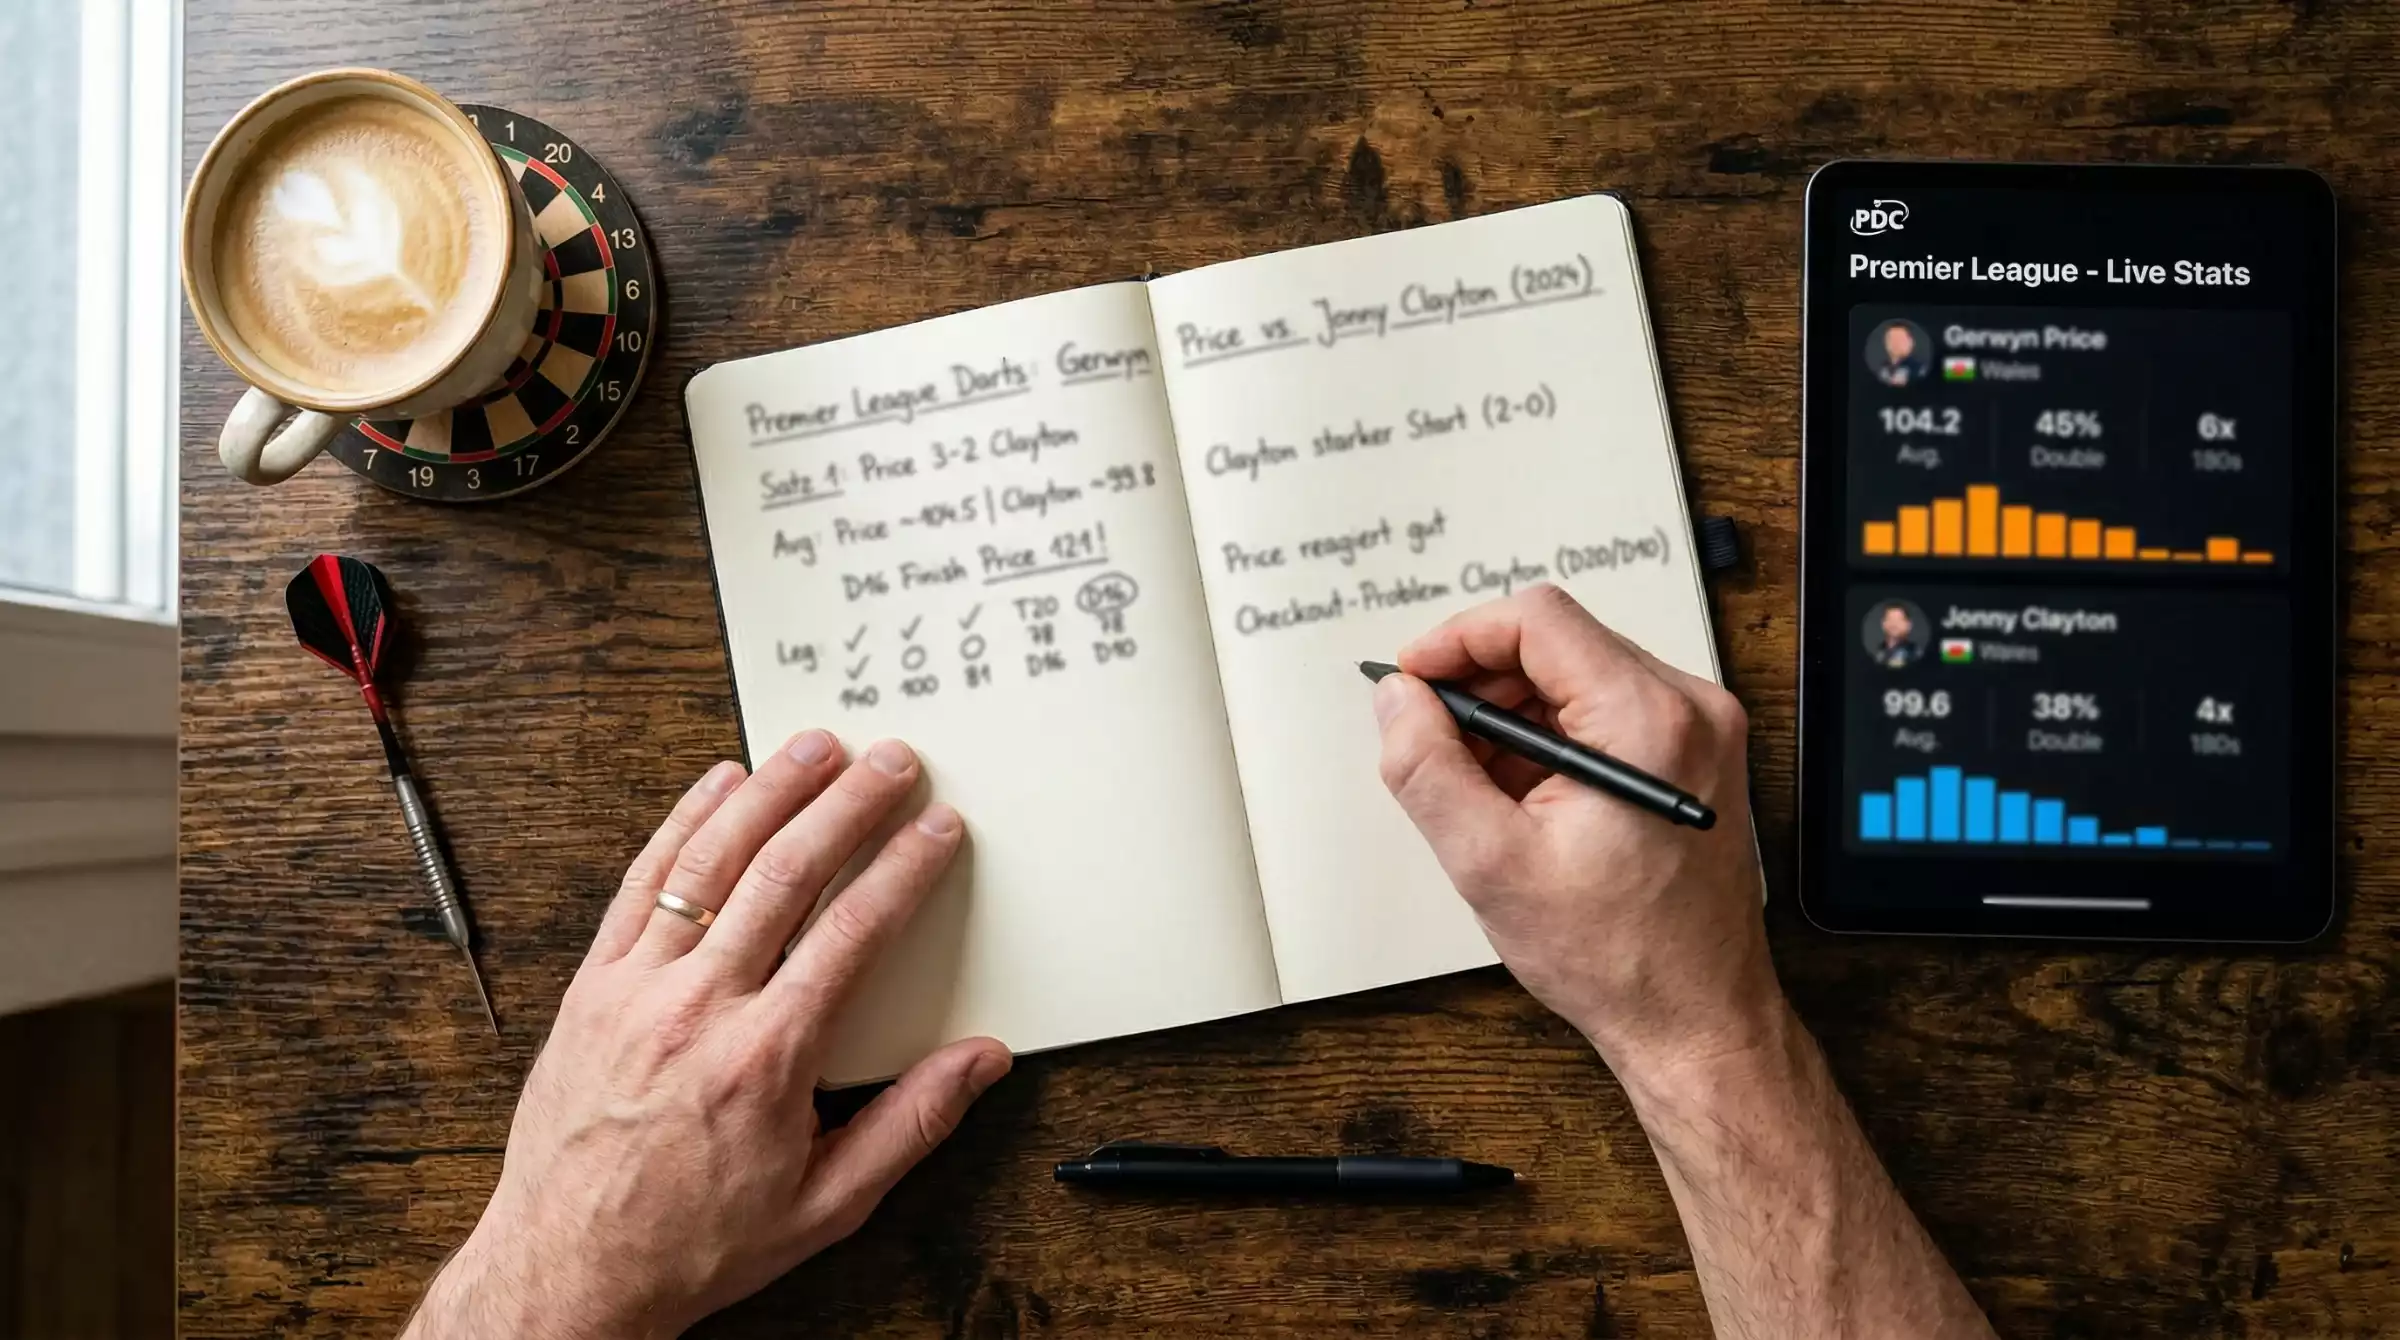 1
20
4
13
6
10
15
2
17
3
19
7
Premier League Darts: Gerwyn
Satz 1: Price 3-2 Clayton
Avg: Price ~104.5 | Clayton ~99.8
D16 Finish Price 121!
Leg: ✓ ✓ ✓ T20 D16
✓ O O 78 78
140 100 81 D16 D10
Price vs. Jonny Clayton (2024)
Clayton starker Start (2-0)
Price reagiert gut
Checkout-Problem Clayton (D20/D10)
PDC
Premier League - Live Stats
Gerwyn Price
Wales
104.2 45% 6x
Avg. Double 180s
Jonny Clayton
Wales
99.6 38% 4x
Avg. Double 180s